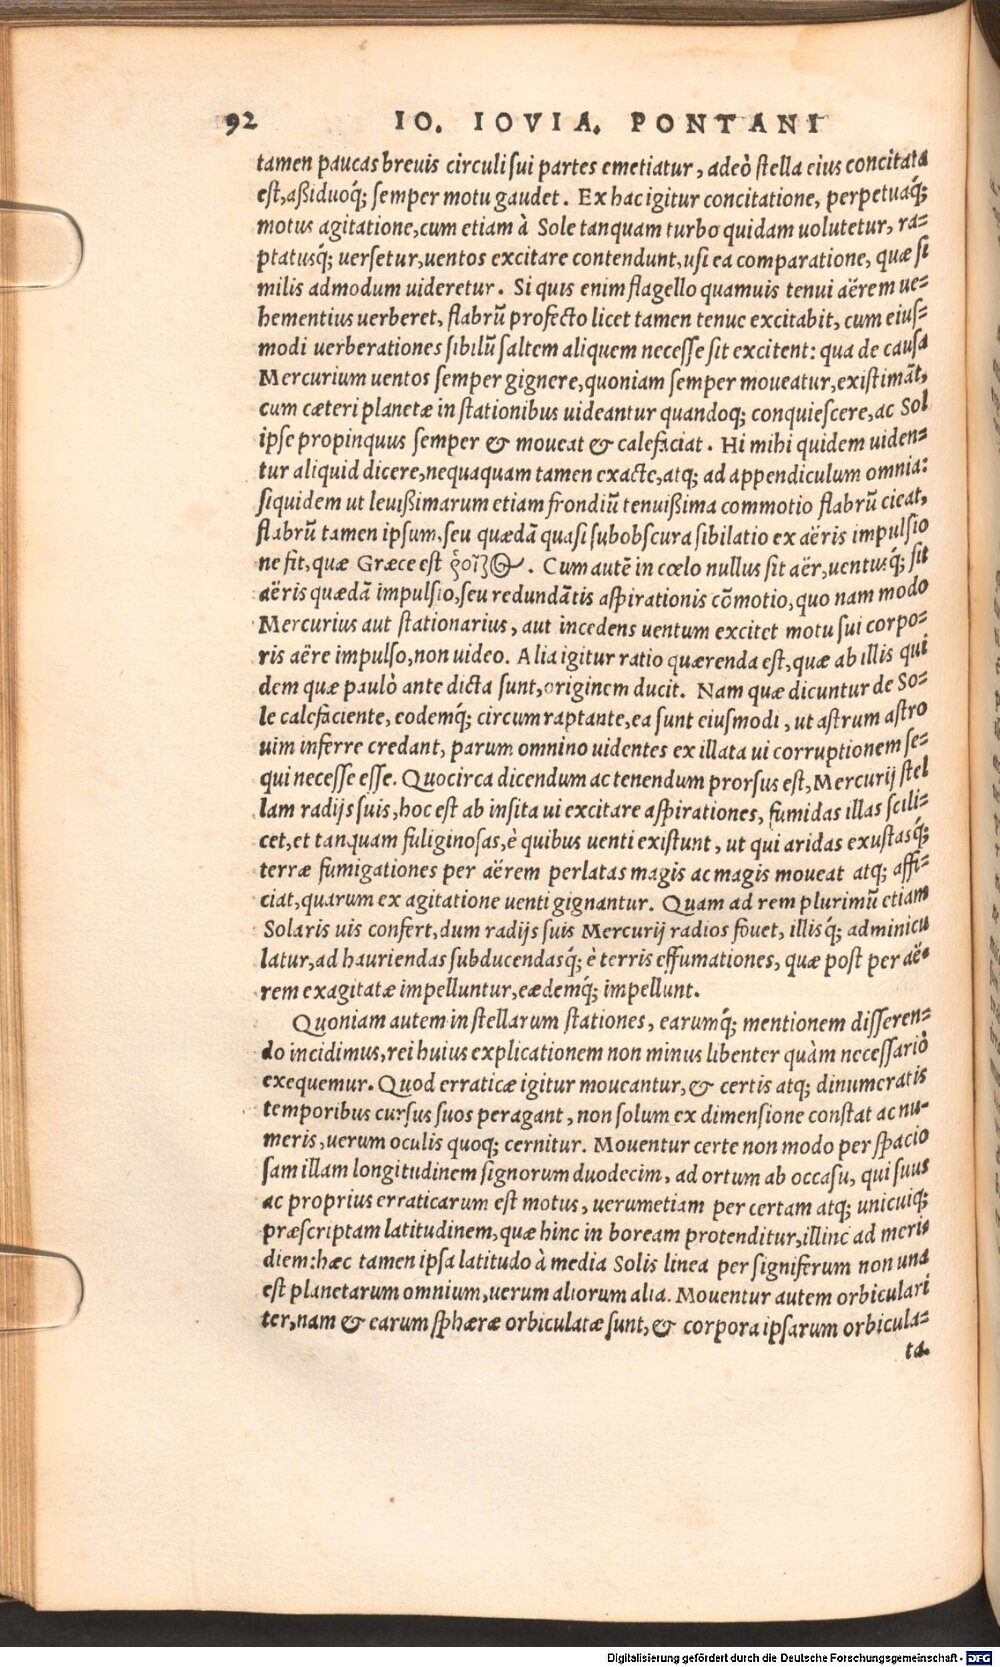 92 IO. IOVIA. PONTANI
tamen paucas breuis circuli sui partes emetiatur, adeò stella eius concitata
est, aßiduoq́; semper motu gaudet. Ex hac igitur concitatione, perpetuaq́;
motus agitatione, cum etiam à Sole tanquam turbo quidam uolutetur, ra=
ptatusq́; uersetur, uentos excitare contendunt, usi ea comparatione, quæ si
milis admodum uideretur. Si quis enim flagello quamuis tenui aërem ue=
hementius uerberet, flabrũ profecto licet tamen tenue excitabit, cum eius=
modi uerberationes sibilũ saltem aliquem necesse sit excitent: qua de causa
Mercurium uentos semper gignere, quoniam semper moueatur, existimãt,
cum cæteri planetæ in stationibus uideantur quandoq; conquiescere, ac Sol
ipse propinquus semper & moueat & calefaciat. Hi mihi quidem uiden=
tur aliquid dicere, nequaquam tamen exacte, atq; ad appendiculum omnia:
siquidem ut leuißimarum etiam frondiũ tenuißima commotio flabrũ cieat,
flabrũ tamen ipsum, seu quædã quasi subobscura sibilatio ex aëris impulsio
ne fit, quæ Græce est ῥοῖζος. Cum autẽ in cœlo nullus sit aër, uentusq́; sit
aëris quædã impulsio, seu redundãtis aspirationis cõmotio, quo nam modo
Mercurius aut stationarius, aut incedens uentum excitet motu sui corpo=
ris aëre impulso, non uideo. Alia igitur ratio quærenda est, quæ ab illis qui
dem quæ paulò ante dicta sunt, originem ducit. Nam quæ dicuntur de So=
le calefaciente, eodemq́; circumraptante, ea sunt eiusmodi, ut astrum astro
uim inferre credant, parum omnino uidentes ex illata ui corruptionem se=
qui necesse esse. Quocirca dicendum ac tenendum prorsus est, Mercurij stel
lam radijs suis, hoc est ab insita ui excitare aspirationes, fumidas illas scili=
cet, et tanquam fuliginosas, è quibus uenti existunt, ut qui aridas exustasq́;
terræ fumigationes per aërem perlatas magis ac magis moueat atq; affi=
ciat, quarum ex agitatione uenti gignantur. Quam ad rem plurimũ etiam
Solaris uis confert, dum radijs suis Mercurij radios fouet, illisq́; adminicu
latur, ad hauriendas subducendasq́; è terris effumationes, quæ post per aë=
rem exagitatæ impelluntur, eædemq́; impellunt.
Quoniam autem in stellarum stationes, earumq́; mentionem disseren=
do incidimus, rei huius explicationem non minus libenter quàm necessariò
exequemur. Quod erraticæ igitur moueantur, & certis atq; dinumeratis
temporibus cursus suos peragant, non solum ex dimensione constat ac nu=
meris, uerum oculis quoq; cernitur. Mouentur certe non modo per spacio
sam illam longitudinem signorum duodecim, ad ortum ab occasu, qui suus
ac proprius erraticarum est motus, uerumetiam per certam atq; unicuiq;
præscriptam latitudinem, quæ hinc in boream protenditur, illinc ad meri=
diem: hæc tamen ipsa latitudo à media Solis linea per signiferum non una
est planetarum omnium, uerum aliorum alia. Mouentur autem orbiculari
ter, nam & earum sphæræ orbiculatæ sunt, & corpora ipsarum orbicula=
ta.
Digitalisierung gefördert durch die Deutsche Forschungsgemeinschaft - DFG